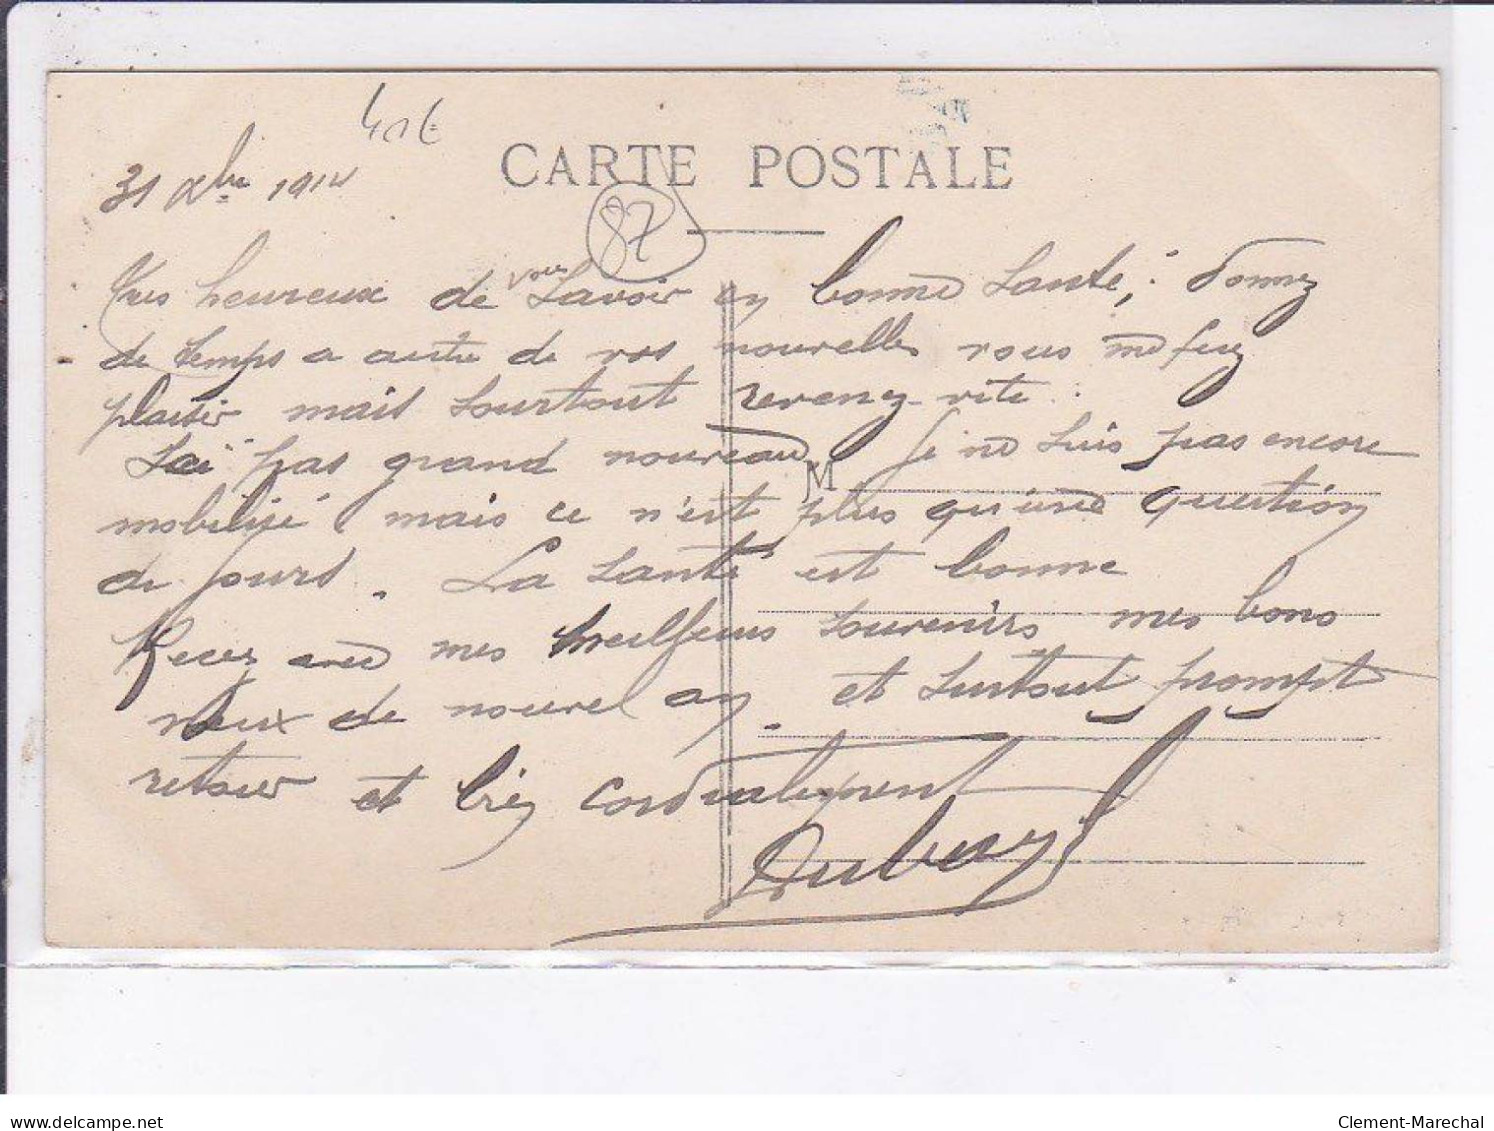 41€
CARTE POSTALE
31 Xbre 1914
87
Très heureux de vous Savoir en bonne Santé, donnez
de temps a autre de vos nouvelles vous me ferez
plaisir mais Surtout revenez vite.
Ici pas grand nouveau Je ne Suis pas encore
M
mobilisé mais ce n'est plus qu'une question
de jours. La Santé est bonne
Recez avec mes meilleurs Souvenirs mes bons
vœux de nouvel an. et Surtout prompt
retour et bien cordialement
Delcampe.net
Clement-Marechal